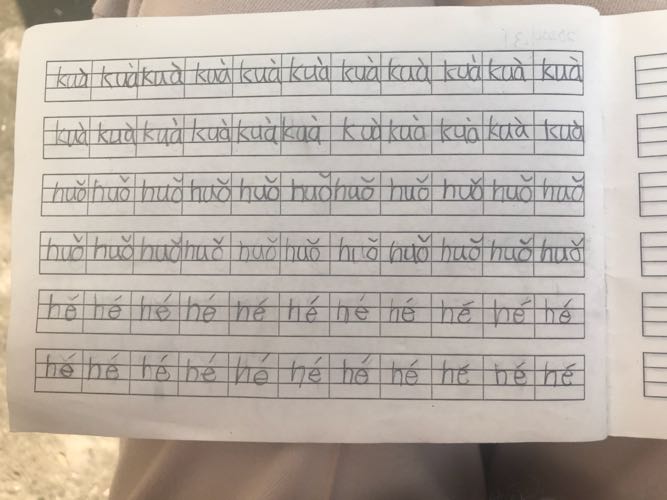 kuà kuà kuà kuà kuà kuà kuà kuà kuà kuà kuà
kuà kuà kuà kuà kuà kuà kuà kuà kuà kuà kuà
huǒ huǒ huǒ huǒ huǒ huǒ huǒ huǒ huǒ huǒ huǒ
huǒ huǒ huǒ huǒ huǒ huǒ huǒ huǒ huǒ huǒ
hé hé hé hé hé hé hé hé hé hé hé
hé hé hé hé hé hé hé hé hé hé hé